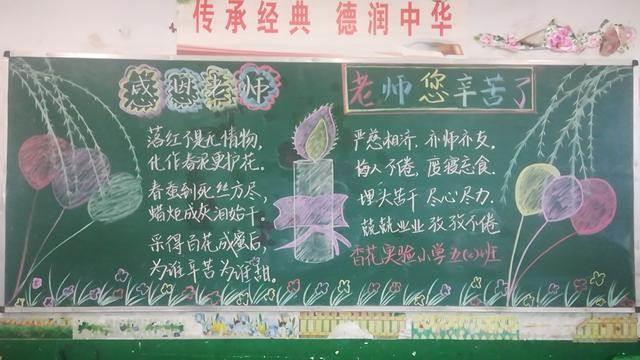 传承经典 德润中华
感恩老师
老师您辛苦了
落红不是无情物，
化作春泥更护花。
春蚕到死丝方尽，
蜡炬成灰泪始干。
采得百花成蜜后，
为谁辛苦为谁甜。
严慈相济 亦师亦友．
诲人不倦 废寝忘食．
埋头苦干 尽心尽力．
兢兢业业 孜孜不倦
香花实验小学五（七）班